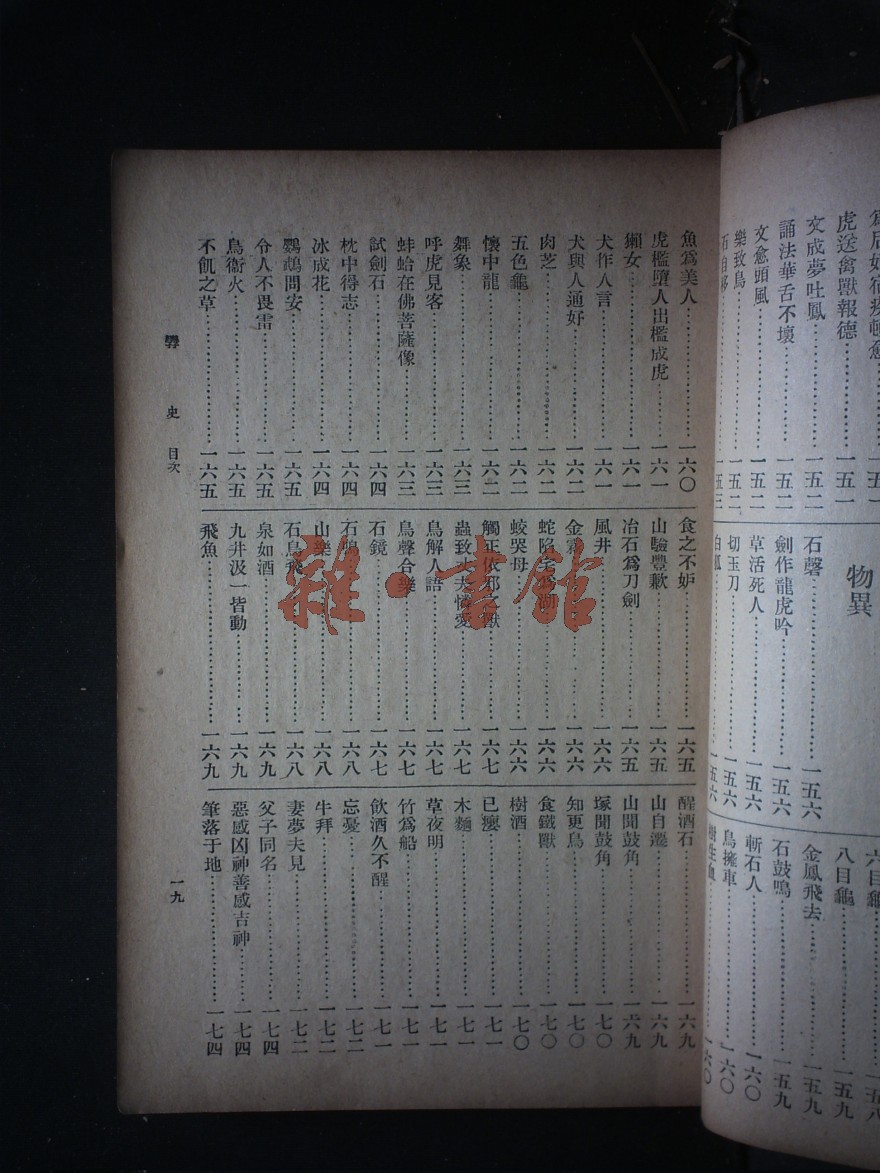 宿疾頓愈……一五一
虎送禽獸報德……一五一
文成夢吐鳳……一五二
誦法華舌不壞……一五二
文愈頭風……一五二
樂致鳥……一五二
石自移……一五三
物異
石磬……一五六
劍作龍虎吟……一五六
草活死人……一五六
切玉刀……一五六
白狐……一五六
六目龜……一五八
八目龜……一五九
金鳳飛去……一五九
石鼓鳴……一五九
斬石人……一六〇
鳥擁車……一六〇
樹生血……一六〇
魚爲美人……一六〇
虎檻墮人出檻成虎……一六一
獺女……一六一
犬作人言……一六一
犬與人通好……一六二
肉芝……一六二
五色龜……一六二
懷中龍……一六二
舞象……一六三
呼虎見客……一六三
蚌蛤在佛菩薩像……一六三
試劍石……一六四
枕中得志……一六四
冰成花……一六四
鸚鵡問安……一六五
令人不畏雷……一六五
鳥銜火……一六五
不飢之草……一六五
食之不妒……一六五
山驗豐歉……一六五
冶石爲刀劍……一六五
風井……一六六
金霧……一六六
蛇陷爲湖……一六六
蛟哭母……一六六
觸正依邪之獸……一六七
蟲致丈夫憐愛……一六七
鳥解人語……一六七
鳥聲合樂……一六七
石鏡……一六七
石鳴……一六八
山樂……一六八
石鳥飛……一六八
泉如酒……一六九
九井汲一皆動……一六九
飛魚……一六九
醒酒石……一六九
山自遷……一六九
山聞鼓角……一六九
塚聞鼓角……一七〇
知更鳥……一七〇
食鐵獸……一七〇
樹酒……一七〇
已癭……一七一
木麵……一七一
草夜明……一七一
竹爲船……一七一
飲酒久不醒……一七一
忘憂……一七二
牛拜……一七二
妻夢夫見……一七二
父子同名……一七四
惡感凶神善感吉神……一七四
筆落于地……一七四
史　目次
一九
雜·書館